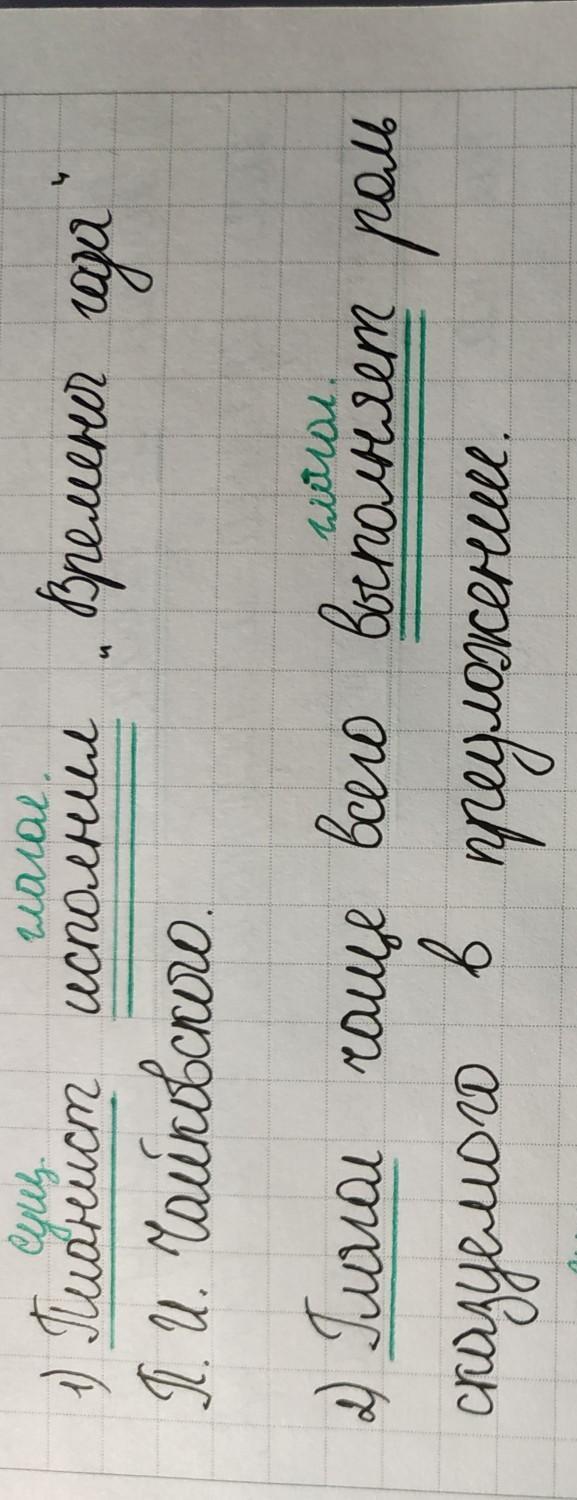 сущ. глагол.
1) Пианист исполнил „Времена года"
П. И. Чайковского.
глагол.
2) Глагол чаще всего выполняет роль
сказуемого в предложении.